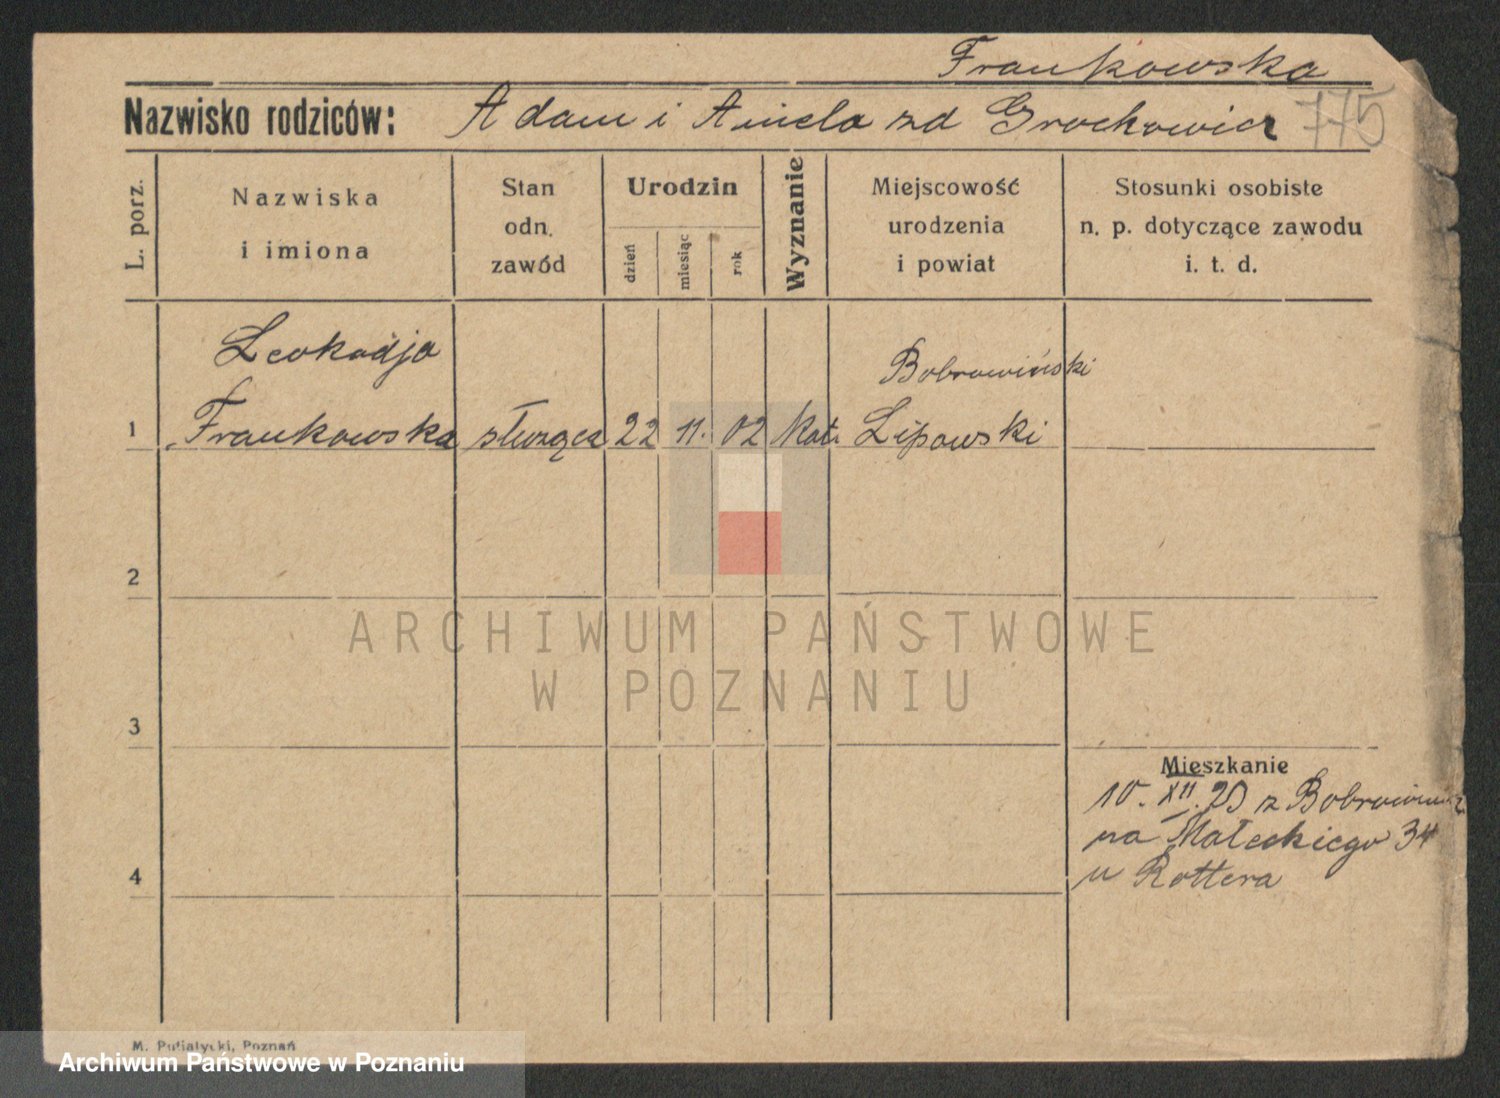 Frankowska
Nazwisko rodziców: Adam i Aniela zd Grochowicz 775
L. porz.
Nazwiska
i imiona
Stan
odn.
zawód
Urodzin
dzień
miesiąc
rok
Wyznanie
Miejscowość
urodzenia
i powiat
Stosunki osobiste
n. p. dotyczące zawodu
i. t. d.
Leokadja Bobrowiński
1 Frankowska służąca 22 11. 02 kat. Lipowski
2
3
4
Mieszkanie
10. XII. 20 z
na Małeckiego 34
u Rottera
M. Putiatycki, Poznań
ARCHIWUM PAŃSTWOWE
W POZNANIU
Archiwum Państwowe w Poznaniu